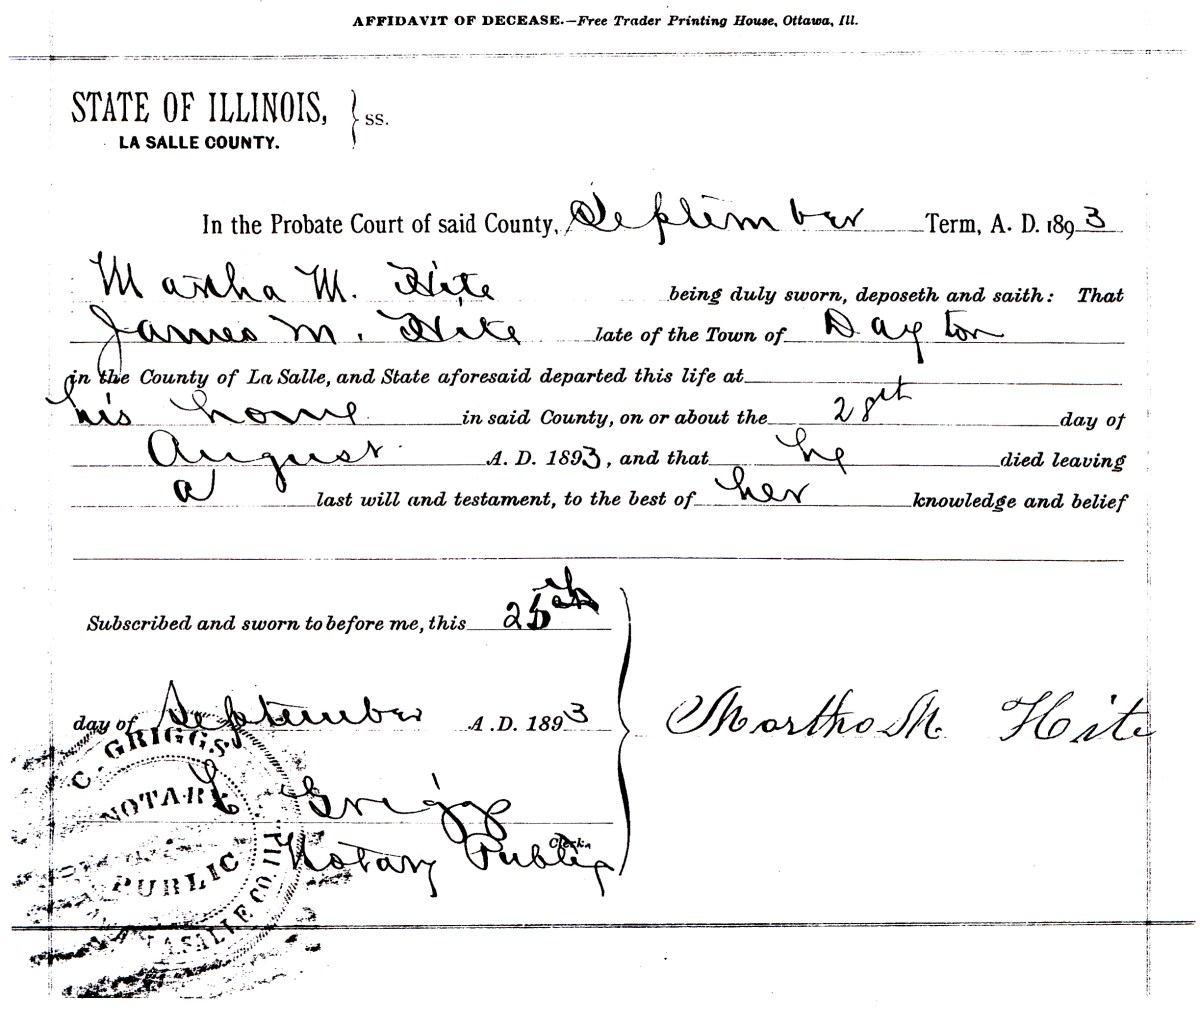 AFFIDAVIT OF DECEASE.—Free Trader Printing House, Ottawa, Ill.
STATE OF ILLINOIS, } ss.
LA SALLE COUNTY.
In the Probate Court of said County, September Term, A. D. 1893
Martha M. Hite being duly sworn, deposeth and saith: That
James M. Hite late of the Town of Dayton
in the County of La Salle, and State aforesaid departed this life at
his home in said County, on or about the 28th day of
August A. D. 1893, and that he died leaving
a last will and testament, to the best of her knowledge and belief
Subscribed and sworn to before me, this 25th
day of September A. D. 1893
Martha M. Hite
C. GRIGGS
NOTARY
PUBLIC
LASALLE CO. ILL.
C Griggs
Clerk.
Notary Public